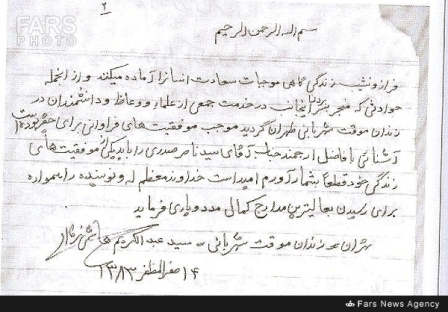 FARS
PHOTO
۲
بسم الله الرحمن الرحیم
فراز و نشیب زندگی گاهی موجبات سعادت انسانرا آماده میکنند و از آنجمله
حوادثی که منجر شد اینجانب در خدمت جمعی از علماء و وعاظ و دانشمندان در
زندان موقت شهربانی طهران گردید موجب موفقیت های فراوانی برای حقیر بوده است
آشنائی با فاضل ارجمند جناب آقای سید ناصر صدری را باید یکی از موفقیت های
زندگی خود قطعاً بشمار آورم امید است خداوند معظم له و نویسنده را همواره
برای رسیدن بعالیترین مدارج کمال مدد و یاری فرماید
طهران زندان موقت شهربانی سید عبدالکریم هاشمی نژاد
۱۴ صفر المظفر ۱۳۸۳
Fars News Agency